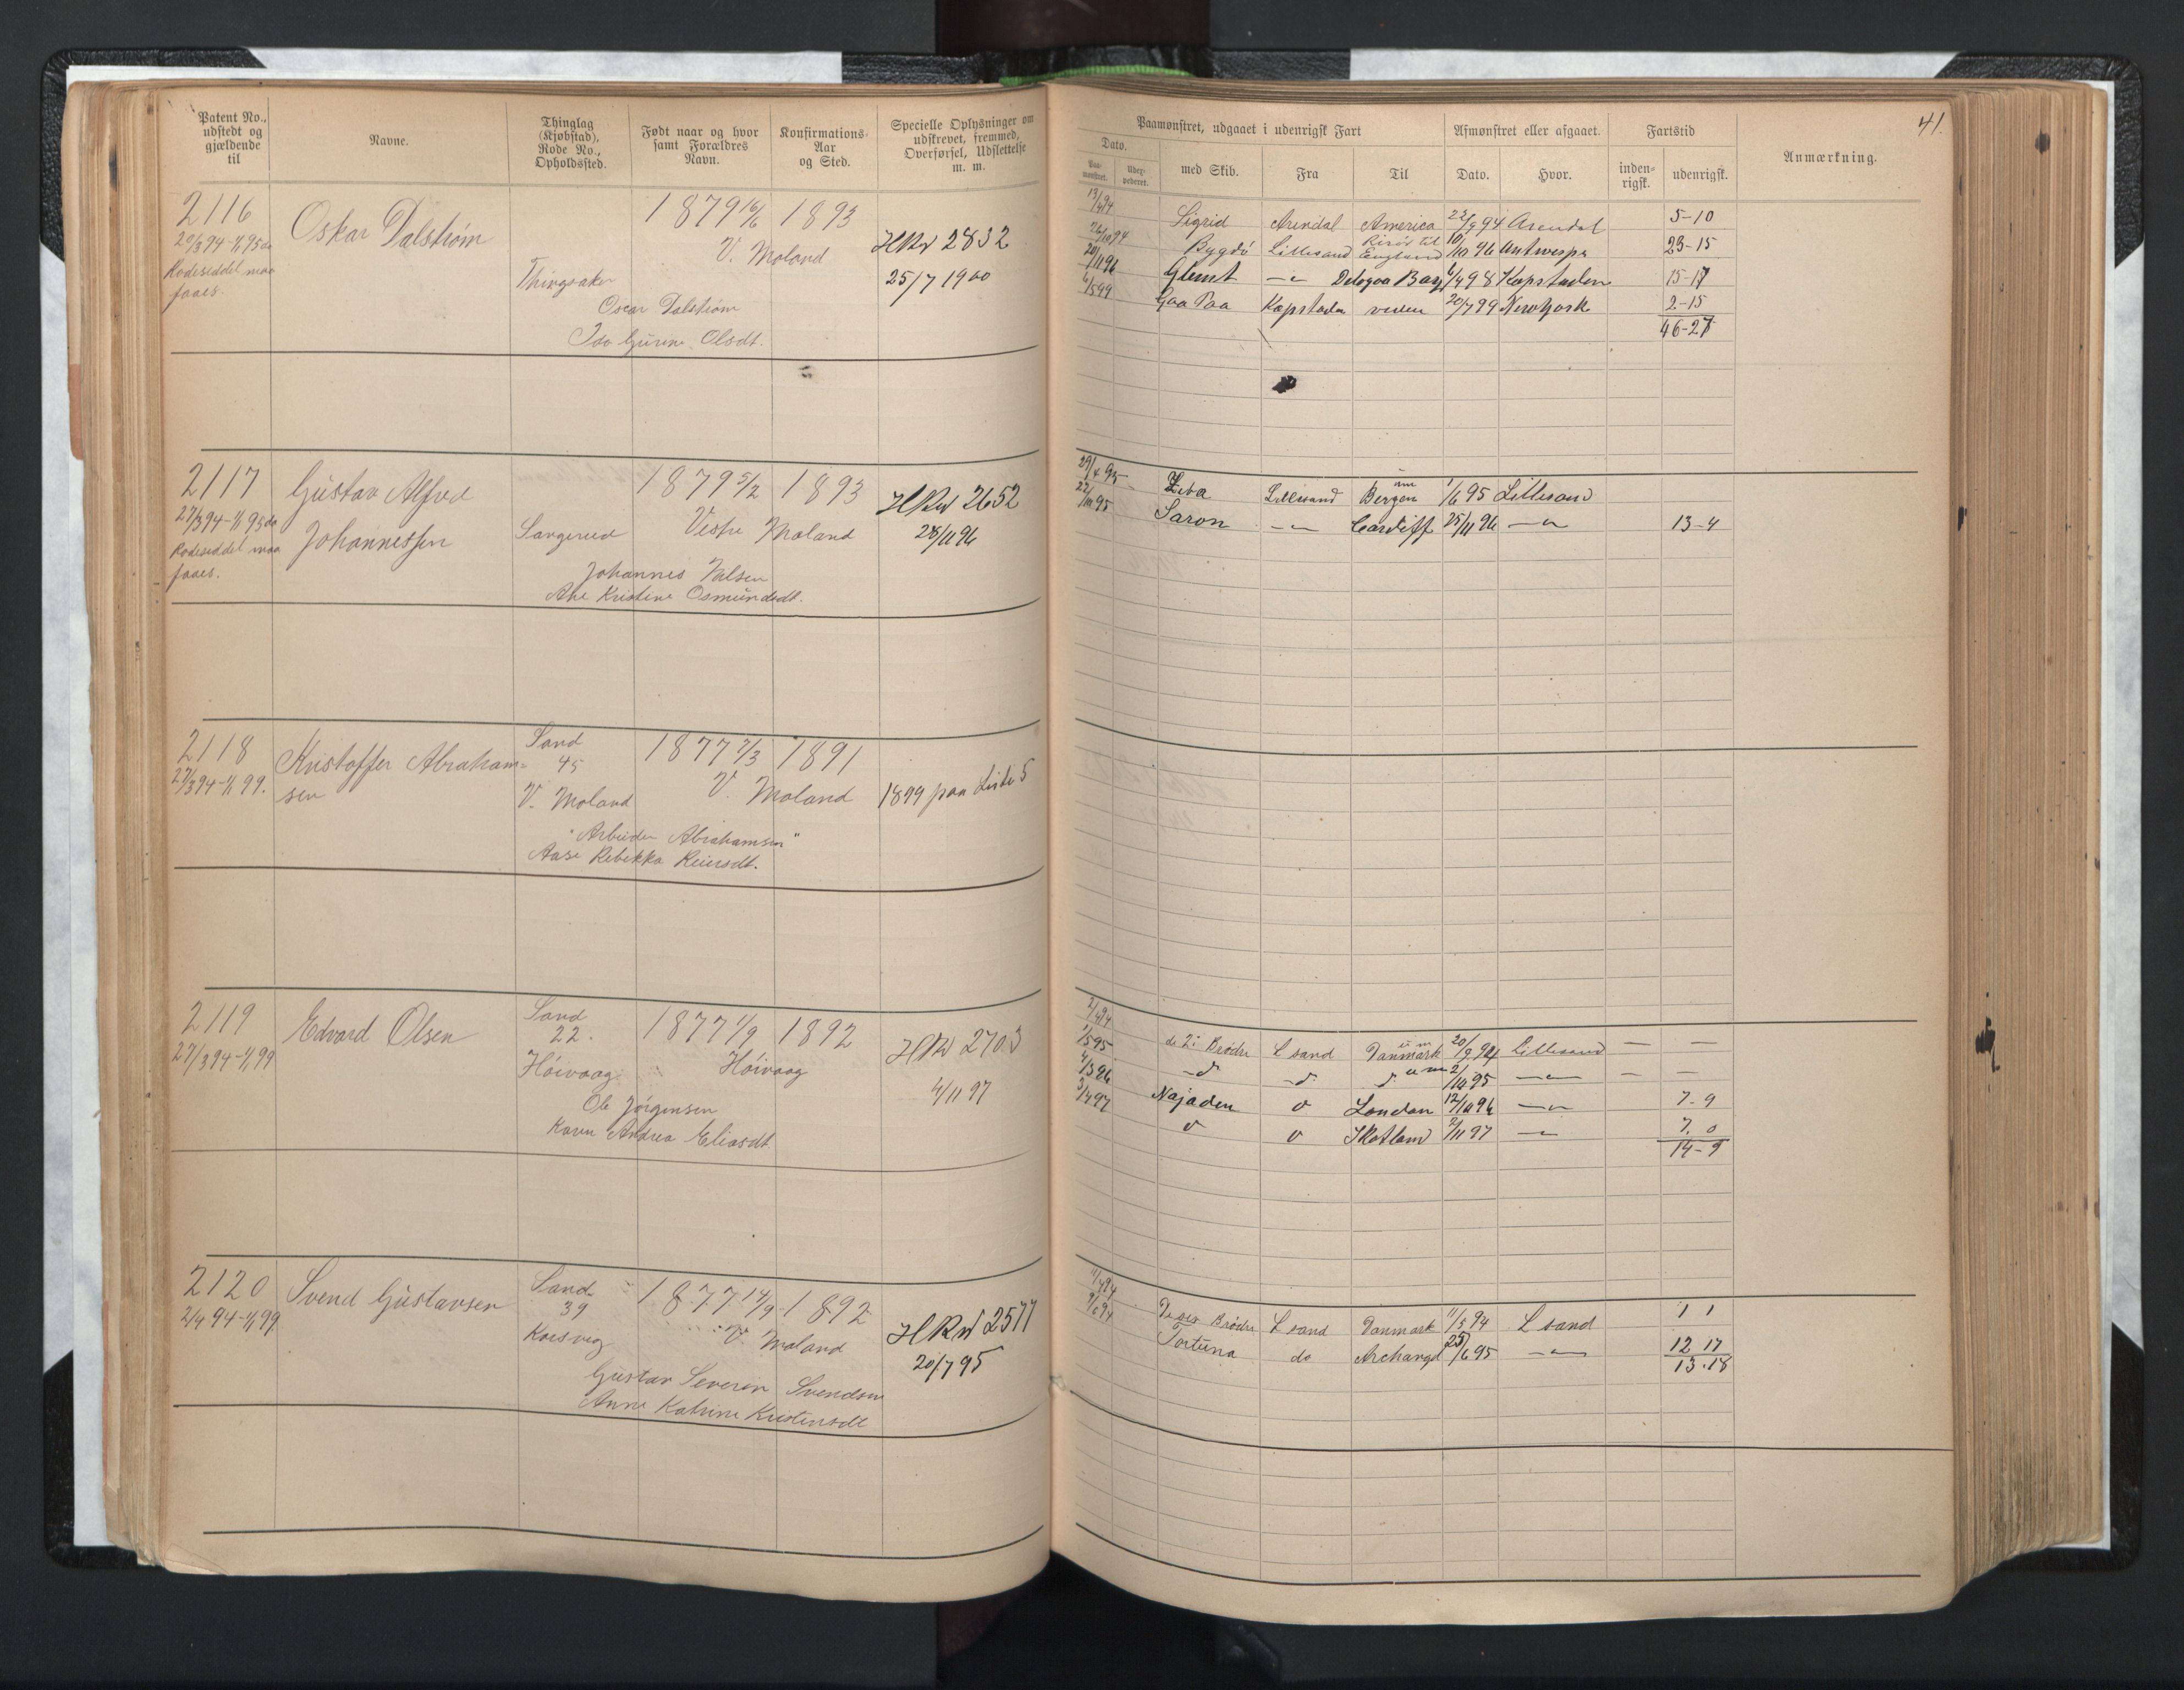 Patent No.,
udstedt og
gjældende
til
Navne.
Thinglag
(Kjøbstad),
Rode No.,
Opholdssted.
Født naar og hvor
samt Forældres
Navn.
Konfirmations-
Aar
og Sted.
Specielle Oplysninger om
udskrevet, fremmed,
Overførsel, Udslettelse
m. m.
2116
20/3 94-1/1 95 da
Rodeseddel maa
faaes.
Oskar Dalstrøm
Thingsaker
1879 16/6
1893
V. Moland
Oscar Dalstrøm
Ida Gurine Olsdt.
HRul 2832
25/7 1900
2117
27/3 94-1/1 95 da
Rodeseddel maa
faaes.
Gustav Alfred
Johannessen
Sangereid
1879 5/2
1893
Vestre Moland
Johannes Nilsen
Ane Kristine Osmundsdt.
HRul 2652
28/11 96
2118
27/3 94-1/1 99.
Kristoffer Abraham=
sen
Sand
45
V. Moland
1877 7/3
1891
V. Moland
"Arbeider Abrahamsen"
Aase Rebekka Reiersdt.
1899 paa Liste 5
2119
27/3 94-1/1 99
Edvard Olsen
Sand
22.
Høivaag
1877 1/9
1892
Høivaag
Ole Jørgensen
Karen Andrea Eliasdt.
HRul 2703
4/11 97
2120
2/4 94-1/1 99
Svend Gustavsen
Sand
39
1877 14/9
1892
V. Moland
Gustav Severin Svendsen
Anne Katrine Kristensdt
HRul 2577
20/7 95
41.
Paamønstret, udgaaet i udenrigsk Fart
Afmønstret eller afgaaet.
Fartstid
Anmærkning.
Dato.
Paa-
mønstret.
Uder-
pederet.
med Skib.
Fra
Til
Dato.
Hvor.
inden-
rigsk.
udenrigsk.
13/4 94 Sigrid Arendal America 22/9 94 Arendal 5-10
26/10 94 Bygdø Lillesand Risør til England 10/10 96 Antwerpn 23-15
20/11 96 Glimt -"- Delagoa Bay 6/4 98 Kapstaden 15-17
6/5 99 Gaa Paa Kapstaden 20/7 99 NewYork 2-15
46-27
29/4 95 Bergen 1/6 95 Lillesand
22/10 95 Saron -"- Cardiff 25/11 96 -"- 13-4
2/4 94 de 2 Brødre L sand Danmark 20/9 94 Lillesand — —
1/5 95 -d- -d- 2/10 95 -"- — —
4/3 96 Najaden London 12/10 96 -"- 7-9
3/4 97 Skotland 2/11 97 -"- 7. 0
14-9
4/4 94 Brødre L sand Danmark 11/5 94 L sand 1 1
9/6 94 Fortuna do Archangel 25/6 95 -"- 12 17
13.18